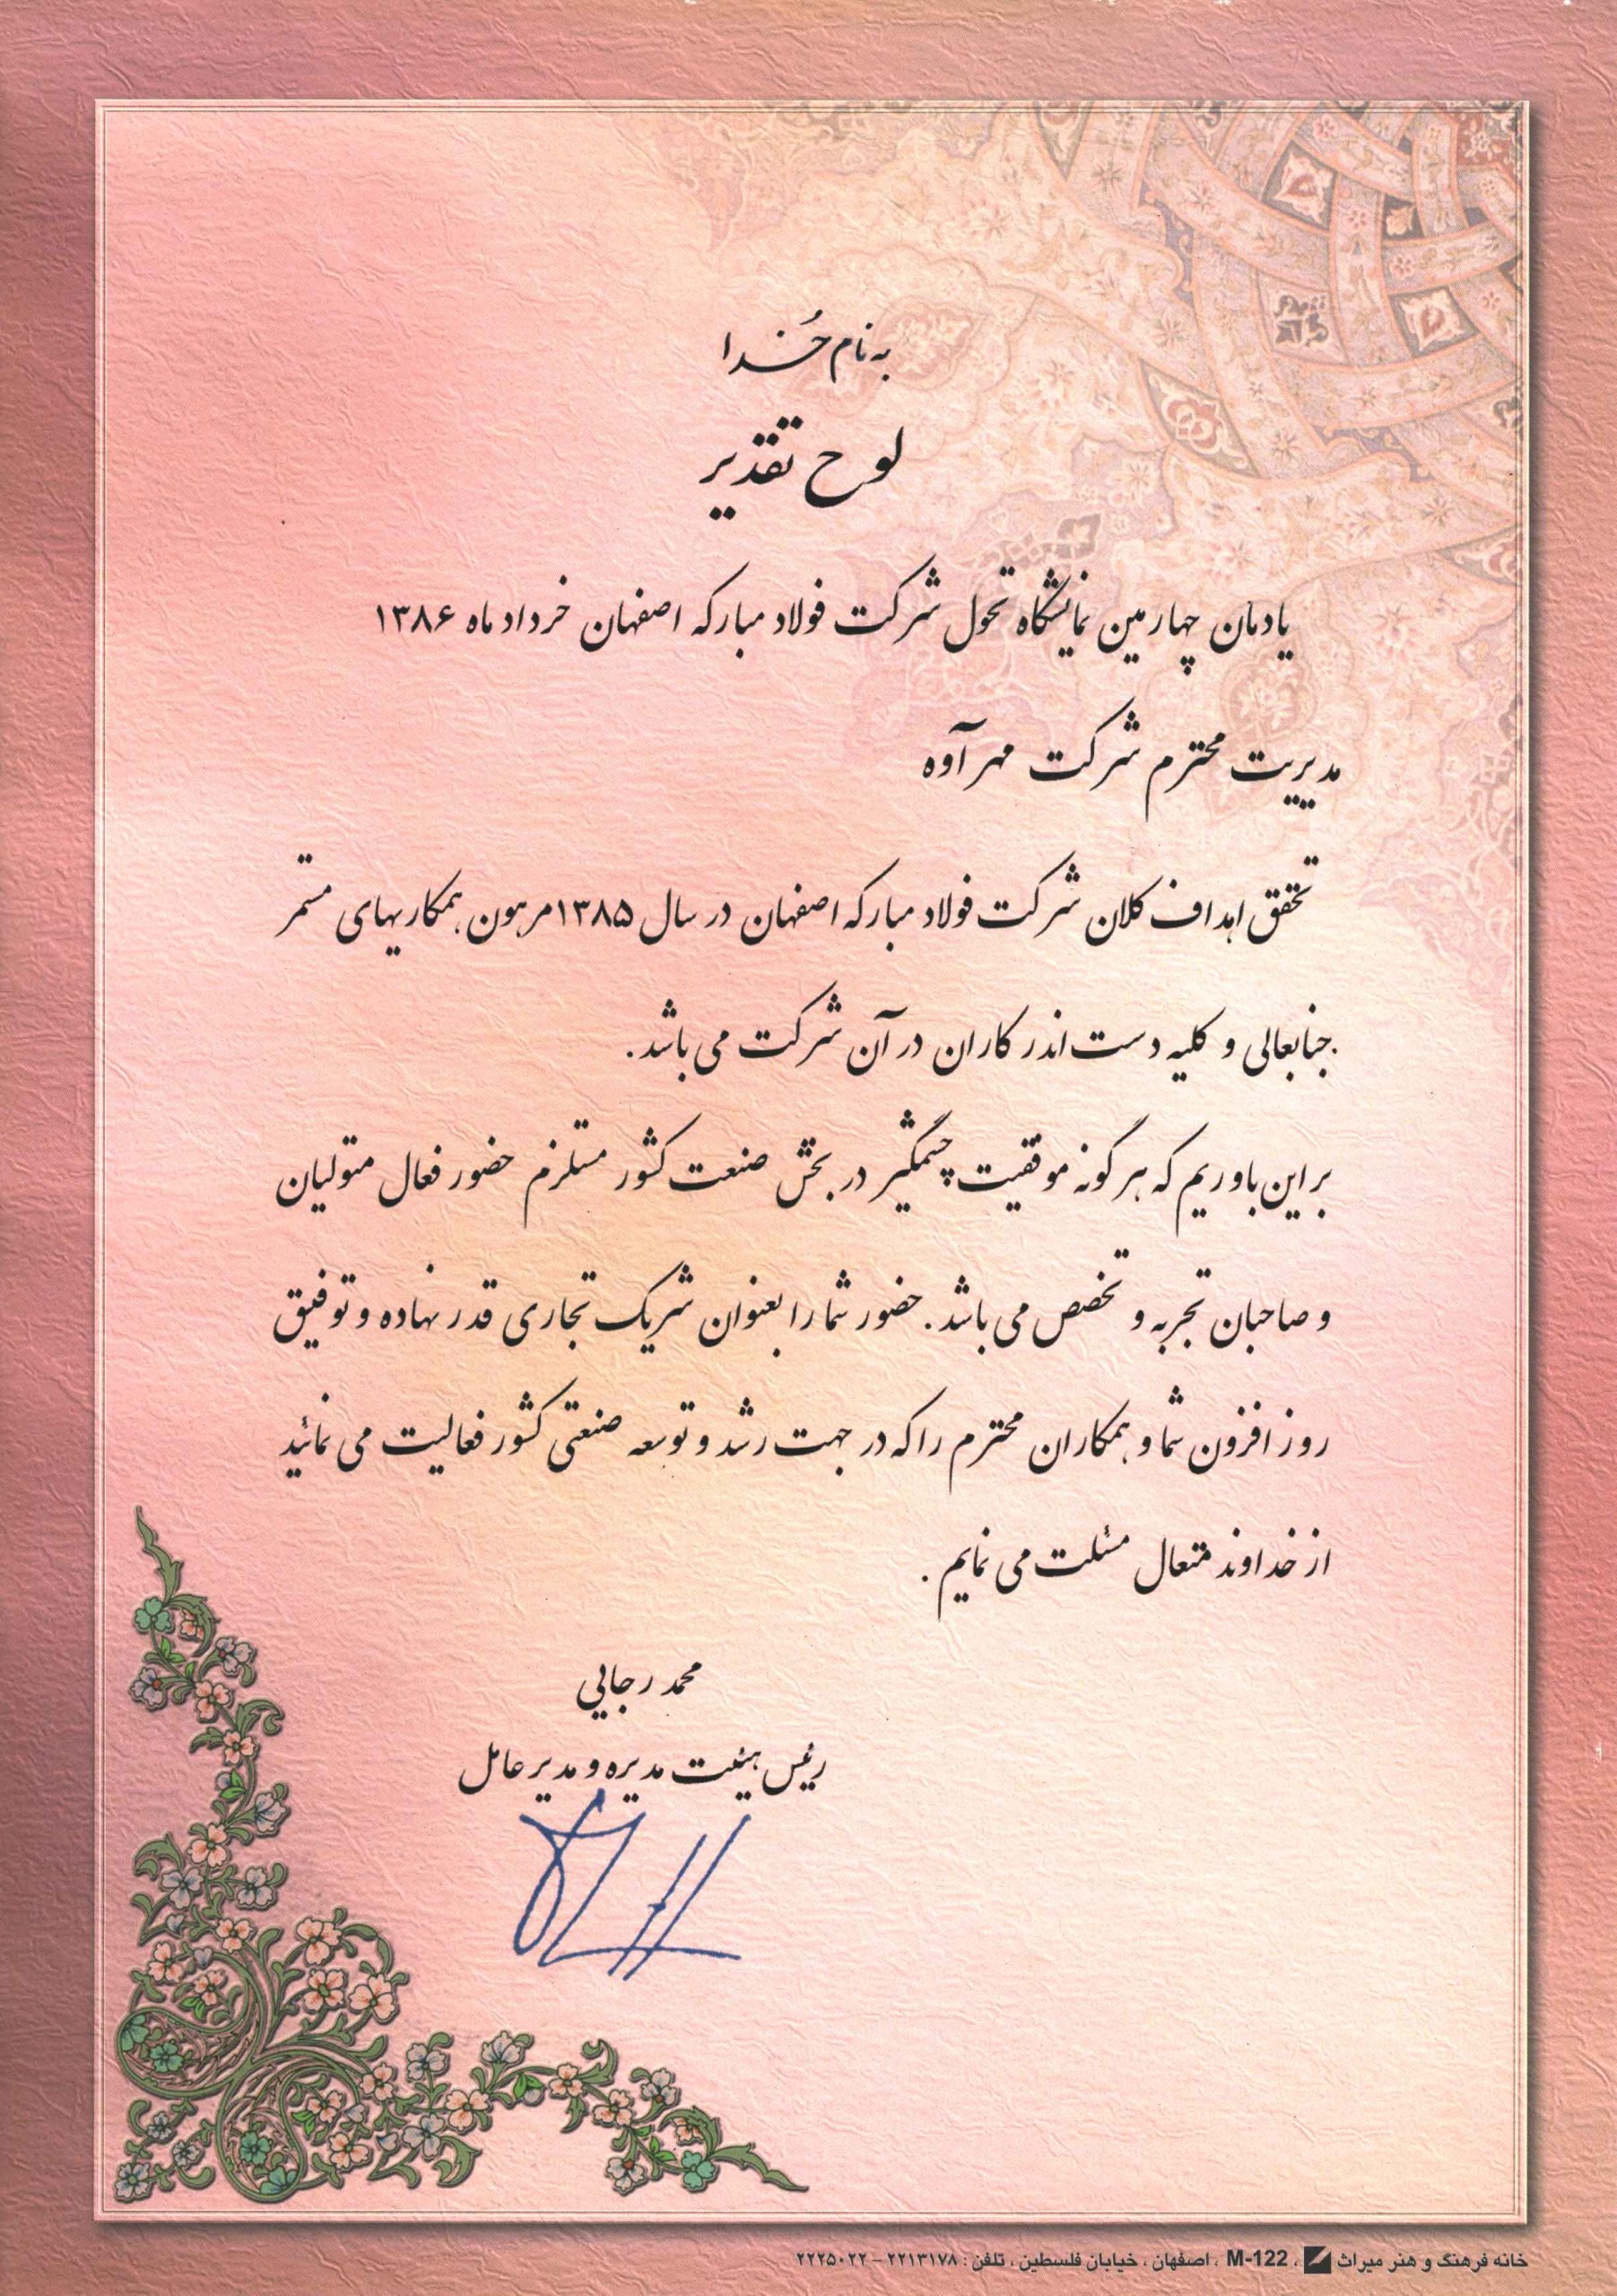 به نام خُدا
لوح تقدیر
یادمان چهارمین نمایشگاه تحول شرکت فولاد مبارکه اصفهان خرداد ماه ۱۳۸۶
مدیریت محترم شرکت مهر آوه
تحقق اهداف کلان شرکت فولاد مبارکه اصفهان در سال ۱۳۸۵ مرهون همکاریهای مستمر
جنابعالی و کلیه دست اندرکاران در آن شرکت می باشد.
بر این باوریم که هر گونه موفقیت چشمگیر در بخش صنعت کشور مستلزم حضور فعال متولیان
و صاحبان تجربه و تخصص می باشد. حضور شما را بعنوان شریک تجاری قدر نهاده و توفیق
روز افزون شما و همکاران محترم را که در جهت رشد و توسعه صنعتی کشور فعالیت می نمائید
از خداوند متعال مسئلت می نمایم.
محمد رجایی
رئیس هیئت مدیره و مدیر عامل
خانه فرهنگ و هنر میراث ، M-122 ، اصفهان ، خیابان فلسطین ، تلفن : ۲۲۱۳۱۷۸ – ۲۲۲۵۰۲۲